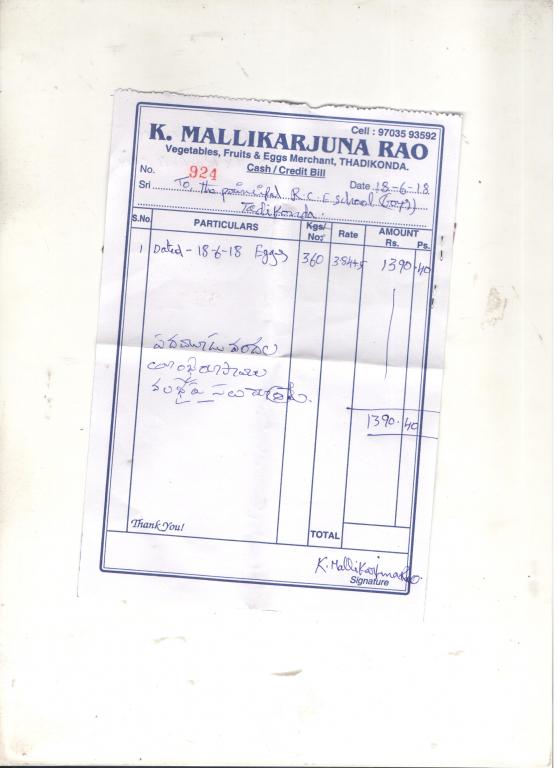 Cell : 97035 93592
K. MALLIKARJUNA RAO
Vegetables, Fruits & Eggs Merchant, THADIKONDA.
Cash / Credit Bill
No. 924 Date 18-6-18
Sri To, the principal R.C.E school (Boys)
Tadikonda.
S.No. PARTICULARS Kgs/ No: Rate AMOUNT Rs. Ps.
1 Dated - 18-6-18 Eggs 360 1390.40
1390.40
Thank You!
TOTAL
K. Mallikarjuna Rao.
Signature